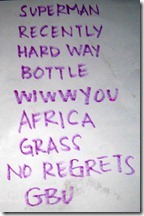 SUPERMAN
RECENTLY
HARD WAY
BOTTLE
WIWWYOU
AFRICA
GRASS
NO REGRETS
GBU